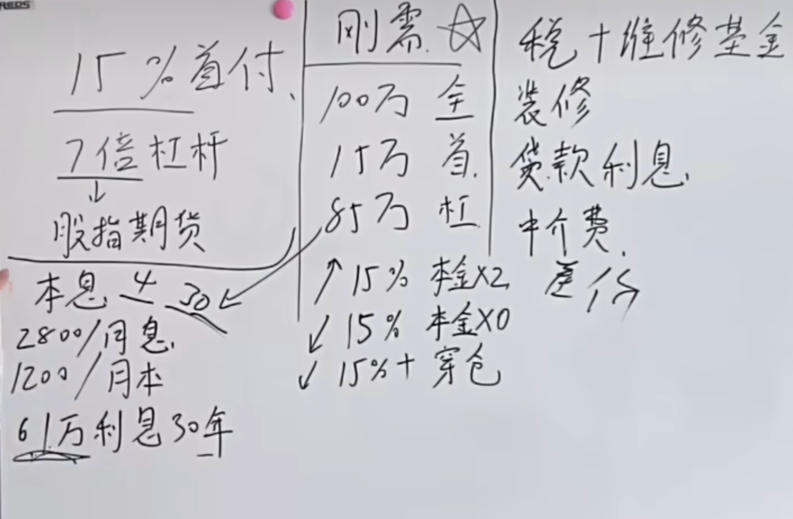 15%首付、
7倍杠杆
↓
股指期货
本息 4 30
2800/月息.
1200/月本
61万利息30年
刚需.☆
100万 全
15万 首.
85万 杠
↑15% 本金×2
↓15% 本金×0
↓15%+ 穿仓
税+维修基金
装修
贷款利息.
中介费.